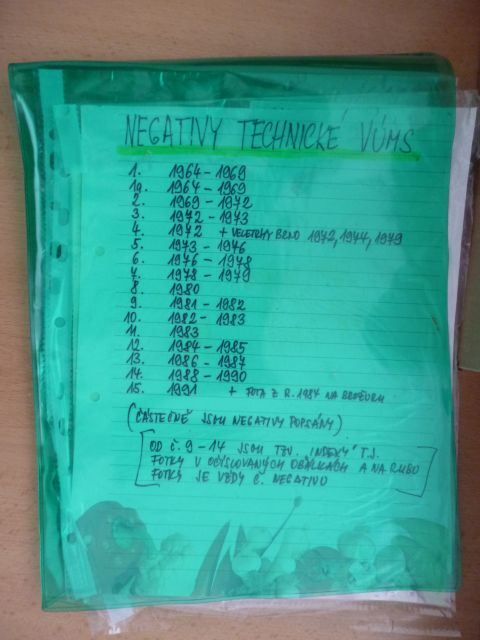 NEGATIVY TECHNICKÉ VÚMS
1. 1964-1969
1a. 1964-1969
2. 1969-1972
3. 1972-1973
4. 1972 + VELETRHY BRNO 1972, 1974, 1979
5. 1973-1976
6. 1976-1978
7. 1978-1979
8. 1980
9. 1981-1982
10. 1982-1983
11. 1983
12. 1984-1985
13. 1986-1987
14. 1988-1990
15. 1991 + FOTA Z R. 1987 NA BROŽURU
(ČÁSTEČNĚ JSOU NEGATIVY POPSÁNY)
[OD Č. 9-14 JSOU TZV. "INDEXY" T.J.
FOTKY V OČÍSLOVANÝCH OBÁLKÁCH A NA RUBU
FOTKY JE VŽDY Č. NEGATIVU]